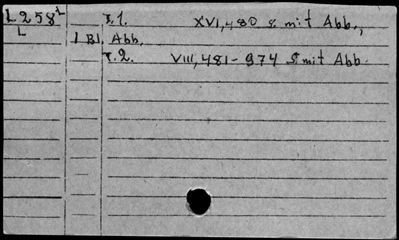 L 258² T.1. XVI, 480 S. mit Abb.,
L
1 Bl. Abb.
T.2. VIII, 481-974 S. mit Abb.